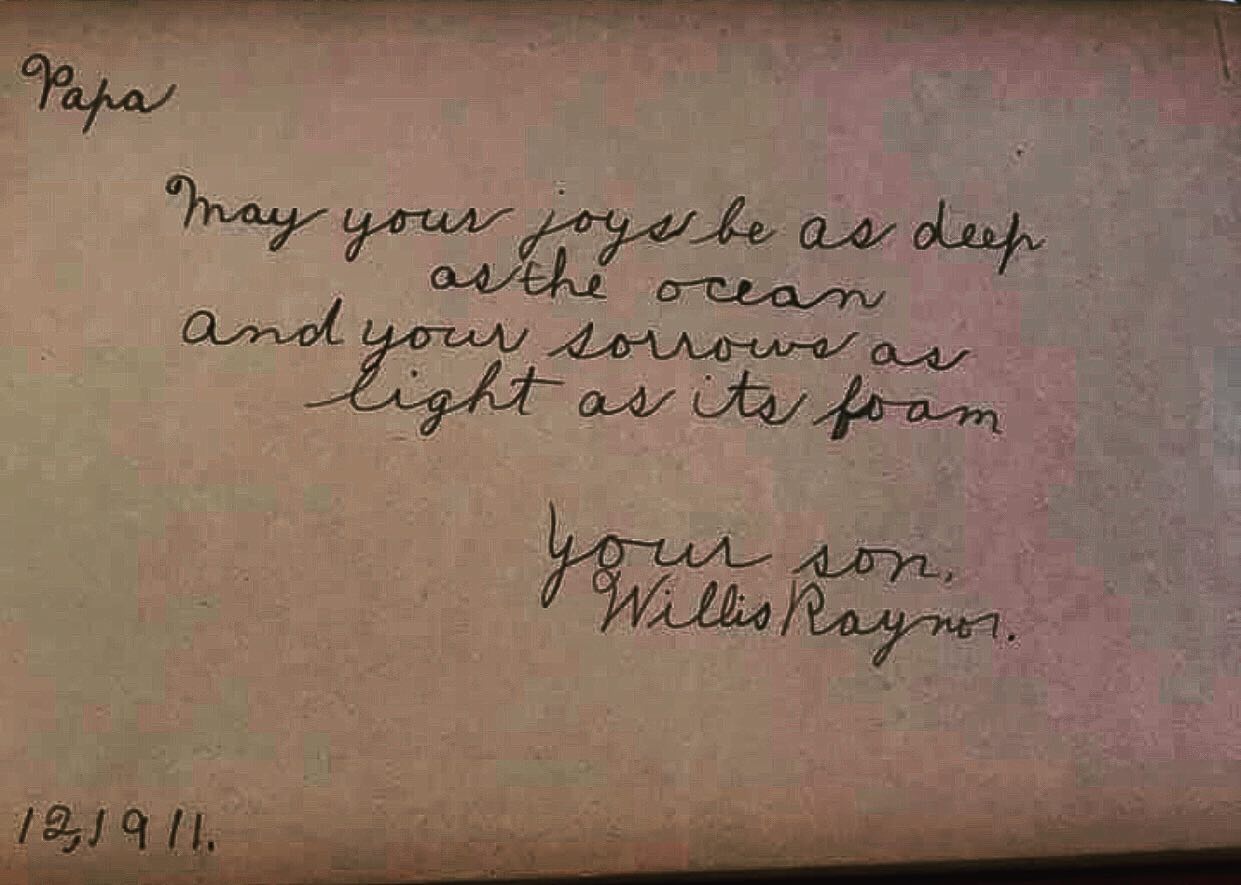 Papa
May your joys be as deep
as the ocean
and your sorrows as
light as its foam
Your son,
Willis Raynor.
12,1911.